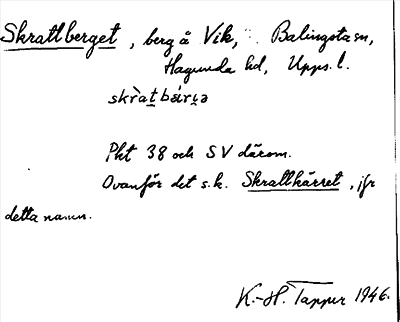 Skrattberget, berg å Vik, Balingsta sn,
Hagunda hd, Upps. l.
skràt̲bár̲ɩ̲ə
Pkt 38 och SV därom.
Ovanför det s.k. Skrattkärret, jfr
detta namn.
K.-H. Tapper 1946.